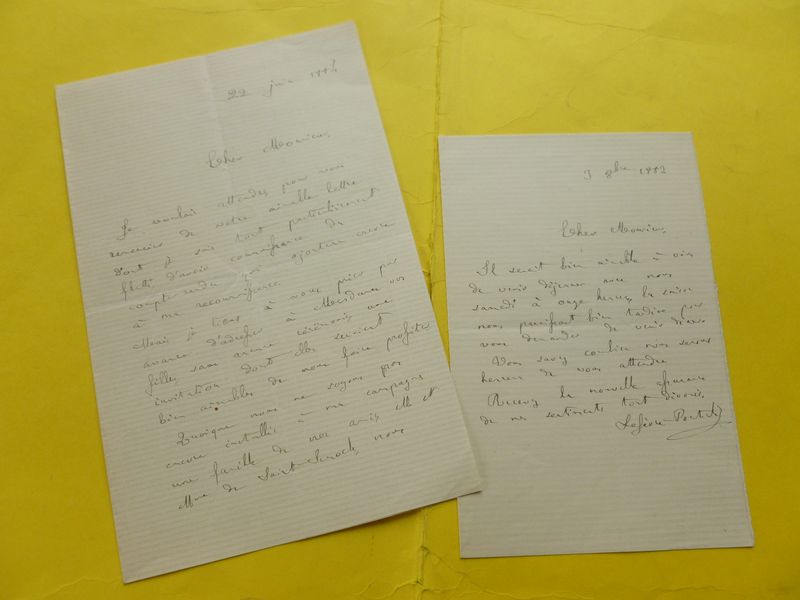 22 juin 1884
Cher Monsieur,
Je voulais attendre pour vous
remercier de votre aimable lettre
dont je suis tout particulièrement
flatté d'avoir connaissance du
compte rendu qui ajoutera encore
à ma reconnaissance.
Mais je tiens à vous prier par
avance d'adresser à Mesdames vos
filles, sans aucune cérémonie, une
invitation dont elles seraient
bien aimables de nous faire profiter
Quoique nous ne soyons pas
encore installés à ma campagne
une famille de nos amis M et
Mme de Saint, nous
3 8bre 1882
Cher Monsieur,
Il serait bien aimable à vous
de venir déjeuner avec nous
samedi à onze heures, la saison
nous paraissant bien tardive pour
vous demander de venir dîner.
Vous savez combien nous serons
heureux de vous attendre
Recevez la nouvelle assurance
de mes sentiments tout dévoués.
Lefèvre-Pontalis